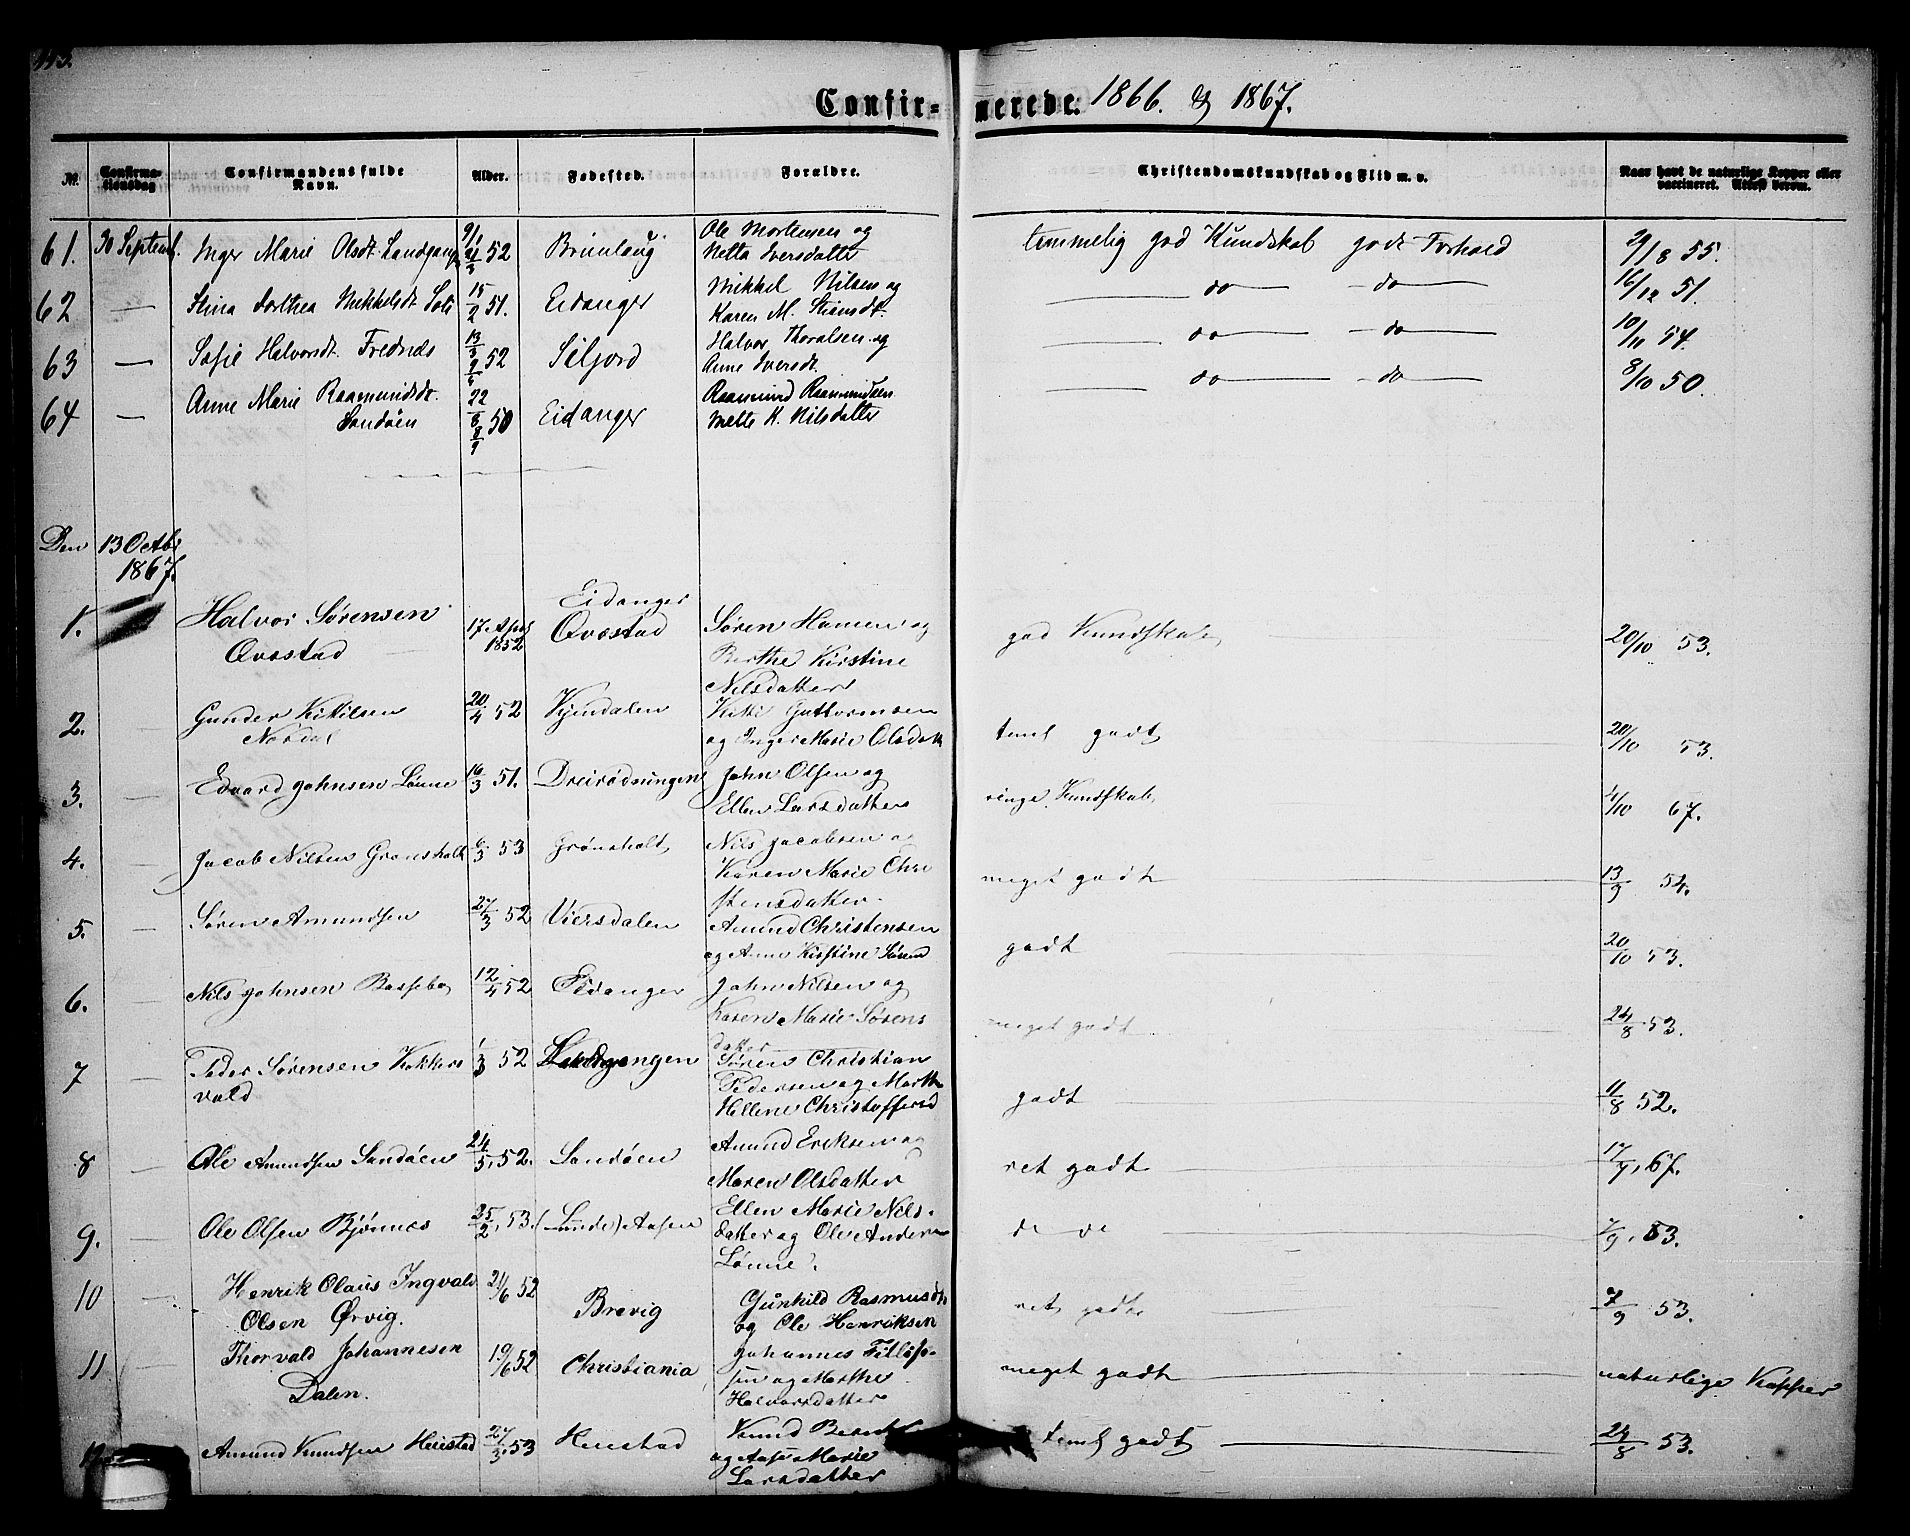 Confir- merede. 1866. & 1867.
Nr. Confirmationsdag Confirmandens fulde Navn. Alder. Fødested. Forældre. Christendomskundskab og Flid m. v. Naar havt de naturlige Kopper eller vaccineret. Attest derom.
61. 30 Septemb. Inger Marie Olsdt. Landgang 9/1 21/3 52 Brunlaug Ole Mortensen og temmelig god Kundskab godt Forhold 29/8 55.
Netta Iversdatter
62 — Stina Dorthea Mikkelsdt. 15/2 51. Eidanger Mikkel Nilsen og — do — do — 16/12 51.
Karen M.
63 — Sofie Halvorsdt. Frednæs 13/3 9/4 52 Siljord Halvor Thoralsen og — do — do — 10/11 54.
Anne Iversdt.
64 — Anne Marie Raamundsdt. 22/6 8/9 50 Eidanger Raamund Raamundsen — do — do — 8/10 50.
Sandøen Mette K. Nilsdatter
Den 13 Octbr
1867.
1. Halvor Sørensen 17 April 1852 Eidanger Søren Hansen og god Kundskab 20/10 53.
Ovestad Ovestad Berthe Kirstine
Nilsdatter
2. Gunder Kittilsen 20/4 52 Kjendalen Kitil Guttormsen teml godt 20/10 53.
og Inger Marie Olsdatt
3. — Edvard Johnsen Lønne 16/3 51. John Olsen og ringe Kundskab 4/10 67.
Ellen Larsdatter
4. — Jacob Nilsen Grønsholt 6/3 53 Grønsholt Nils Jacobsen og meget godt 13/9 54.
Karen Marie Chri
stensdatter.
5. — Søren Amundsen 27/3 52 Viersdalen Amund Christensen godt 20/10 53.
og Anne Kirstine Sørend
6. — Nils Johnsen Bassebo 12/4 52 Eidanger John Nilsen og meget godt 24/8 53.
Karen Marie Sørens
datter
7 — Peder Sørensen Kokkers 1/3 52 Landgangen Søren Christian godt 11/8 52.
vold Pedersen og Marth
Hellene Christoffersd
8 — Ole Amundsen Sandøen 24/5. 52. Sandøen Amund Eriksen og ret godt 17/9. 67.
Maren Olsdatter
9. — Ole Olsen Bjønnes 25/2. 53. (Lunde) Aasen Ellen Marie Nils- do do 7/9. 53.
datter og Ole Andersen
Lønne.
10 — Henrik Olaus Ingvald 21/6 52 Brevig Gunhild Rasmusdtr ret godt 7/9 53.
Olsen Ørvig. og Ole Henriksen
11 — Thorvald Johannesen 19/6 52 Christiania Johannes meget godt naturlige Kopper
Dalen. sen og Marthe
Halvorsdatter
12 Amund Knudsen Heistad 27/3. 53 Heistad Knud teml godt 24/8 53.
og Marie
Larsdatter